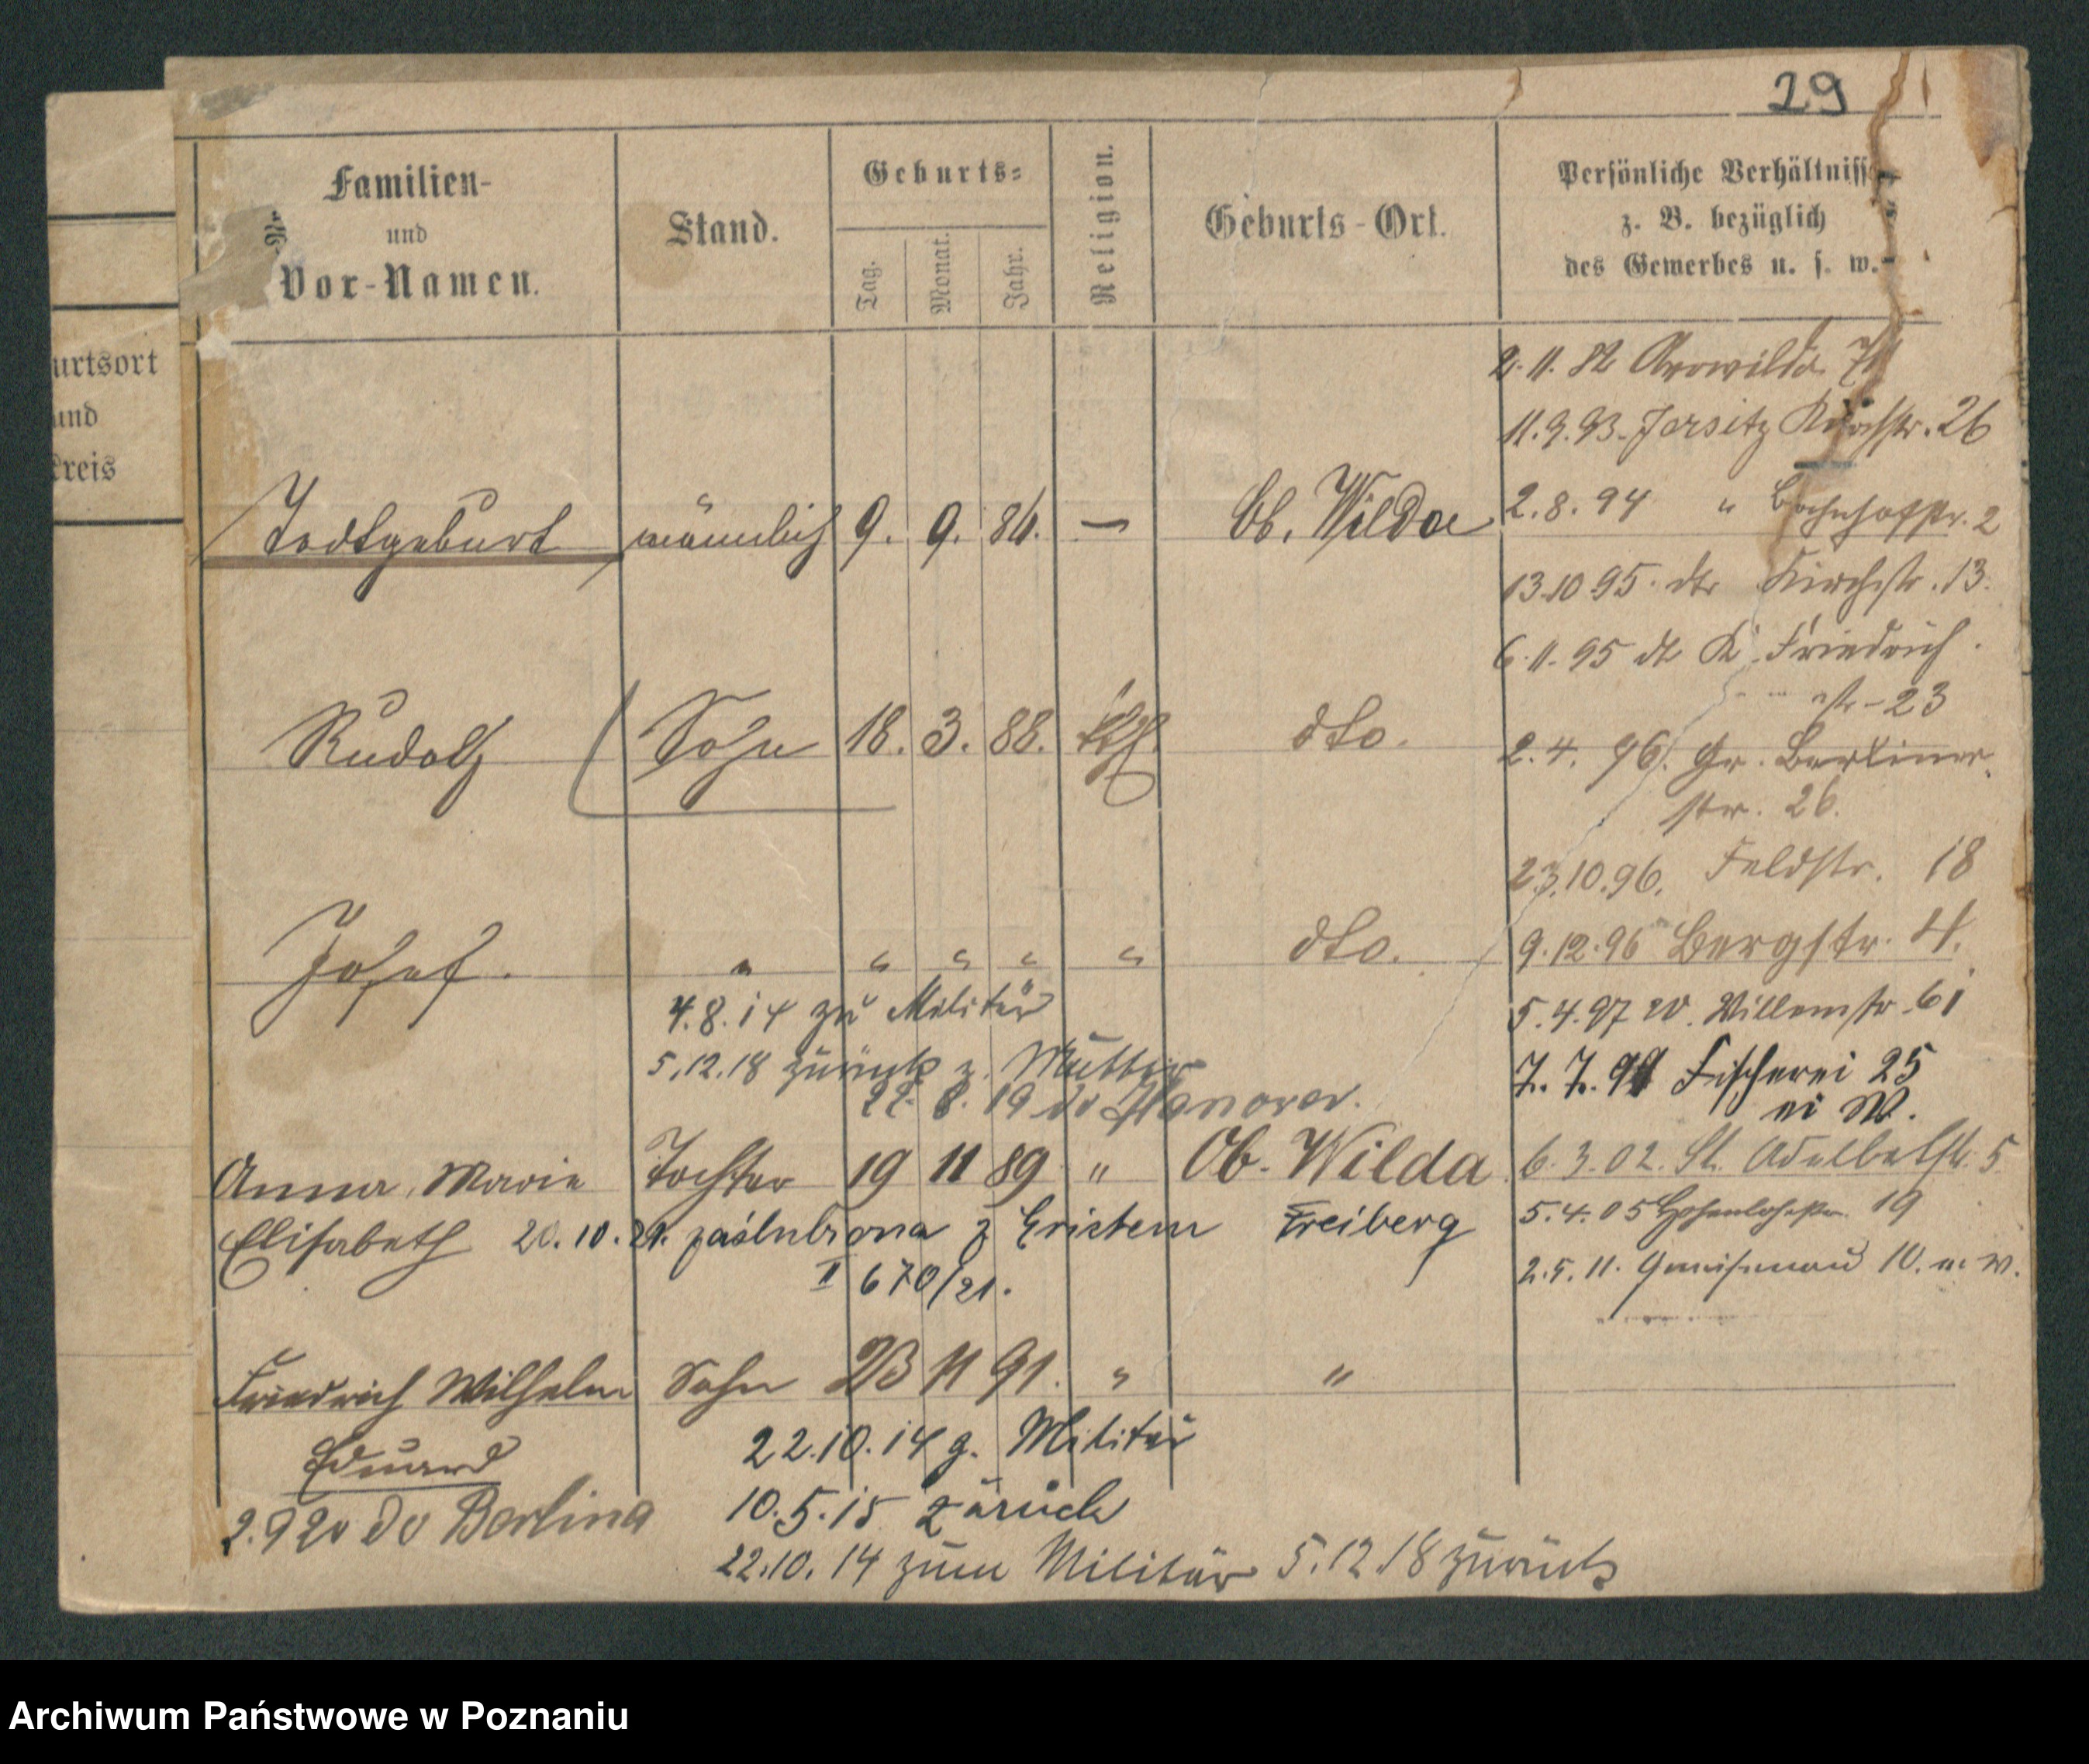 29
urtsort
und
kreis
Familien-
und
Vor-Namen.
Stand.
Geburts-
Tag.
Monat.
Jahr.
Religion.
Geburts-Ort.
Persönliche Verhältnisse
z. B. bezüglich
des Gewerbes u. s. w.
Todtgeburt männlich 9. 9. 86. — Ob. Wilda
Rudolf Sohn 18. 3. 88. kth. dto.
Josef. " " " " " dto.
4.8.14 zu Militär
5.12.18 zurück z. Mutter
22. 8. 19 do Hanover.
Anna, Marie Tochter 19 11 89 " Ob. Wilda
Elisabeth 20.10.21. zaślubiona z Erichem Freiberg
II 670/21.
Friedrich Wilhelm Sohn 23 11 91. " "
Eduard
2.9 20 do Berlina
22.10.14 g. Militär
10.5.15 zurück
22.10.14 zum Militär 5.12.18 zurück
11.9.93. Jersitz Kirchstr. 26
2.8.94 " Bahnhofstr. 2
13.10.95. dto Kirchstr. 13.
6.11.95 dt K. Friedrich
str. 23
2.4.96. Gr. Berliner
str. 26.
23.10.96. Feldstr. 18
9.12.96 Bergstr. 4.
5.4.97 W. Willemstr. 61
7.7.99 Fischerei 25
6.3.02. St. Adelbetstr. 5
5.4.05 Hohenlohestr. 19
2.5.11. Gneisenau 10. m. W.
Archiwum Państwowe w Poznaniu